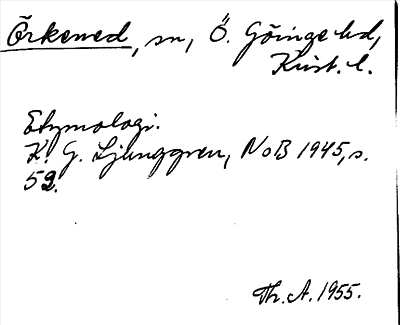 Örkened, sn, Ö. Göinge hd,
Krist. l.
Etymologi.
K. G. Ljunggren, NoB 1945, s.
52.
Th. A. 1955.